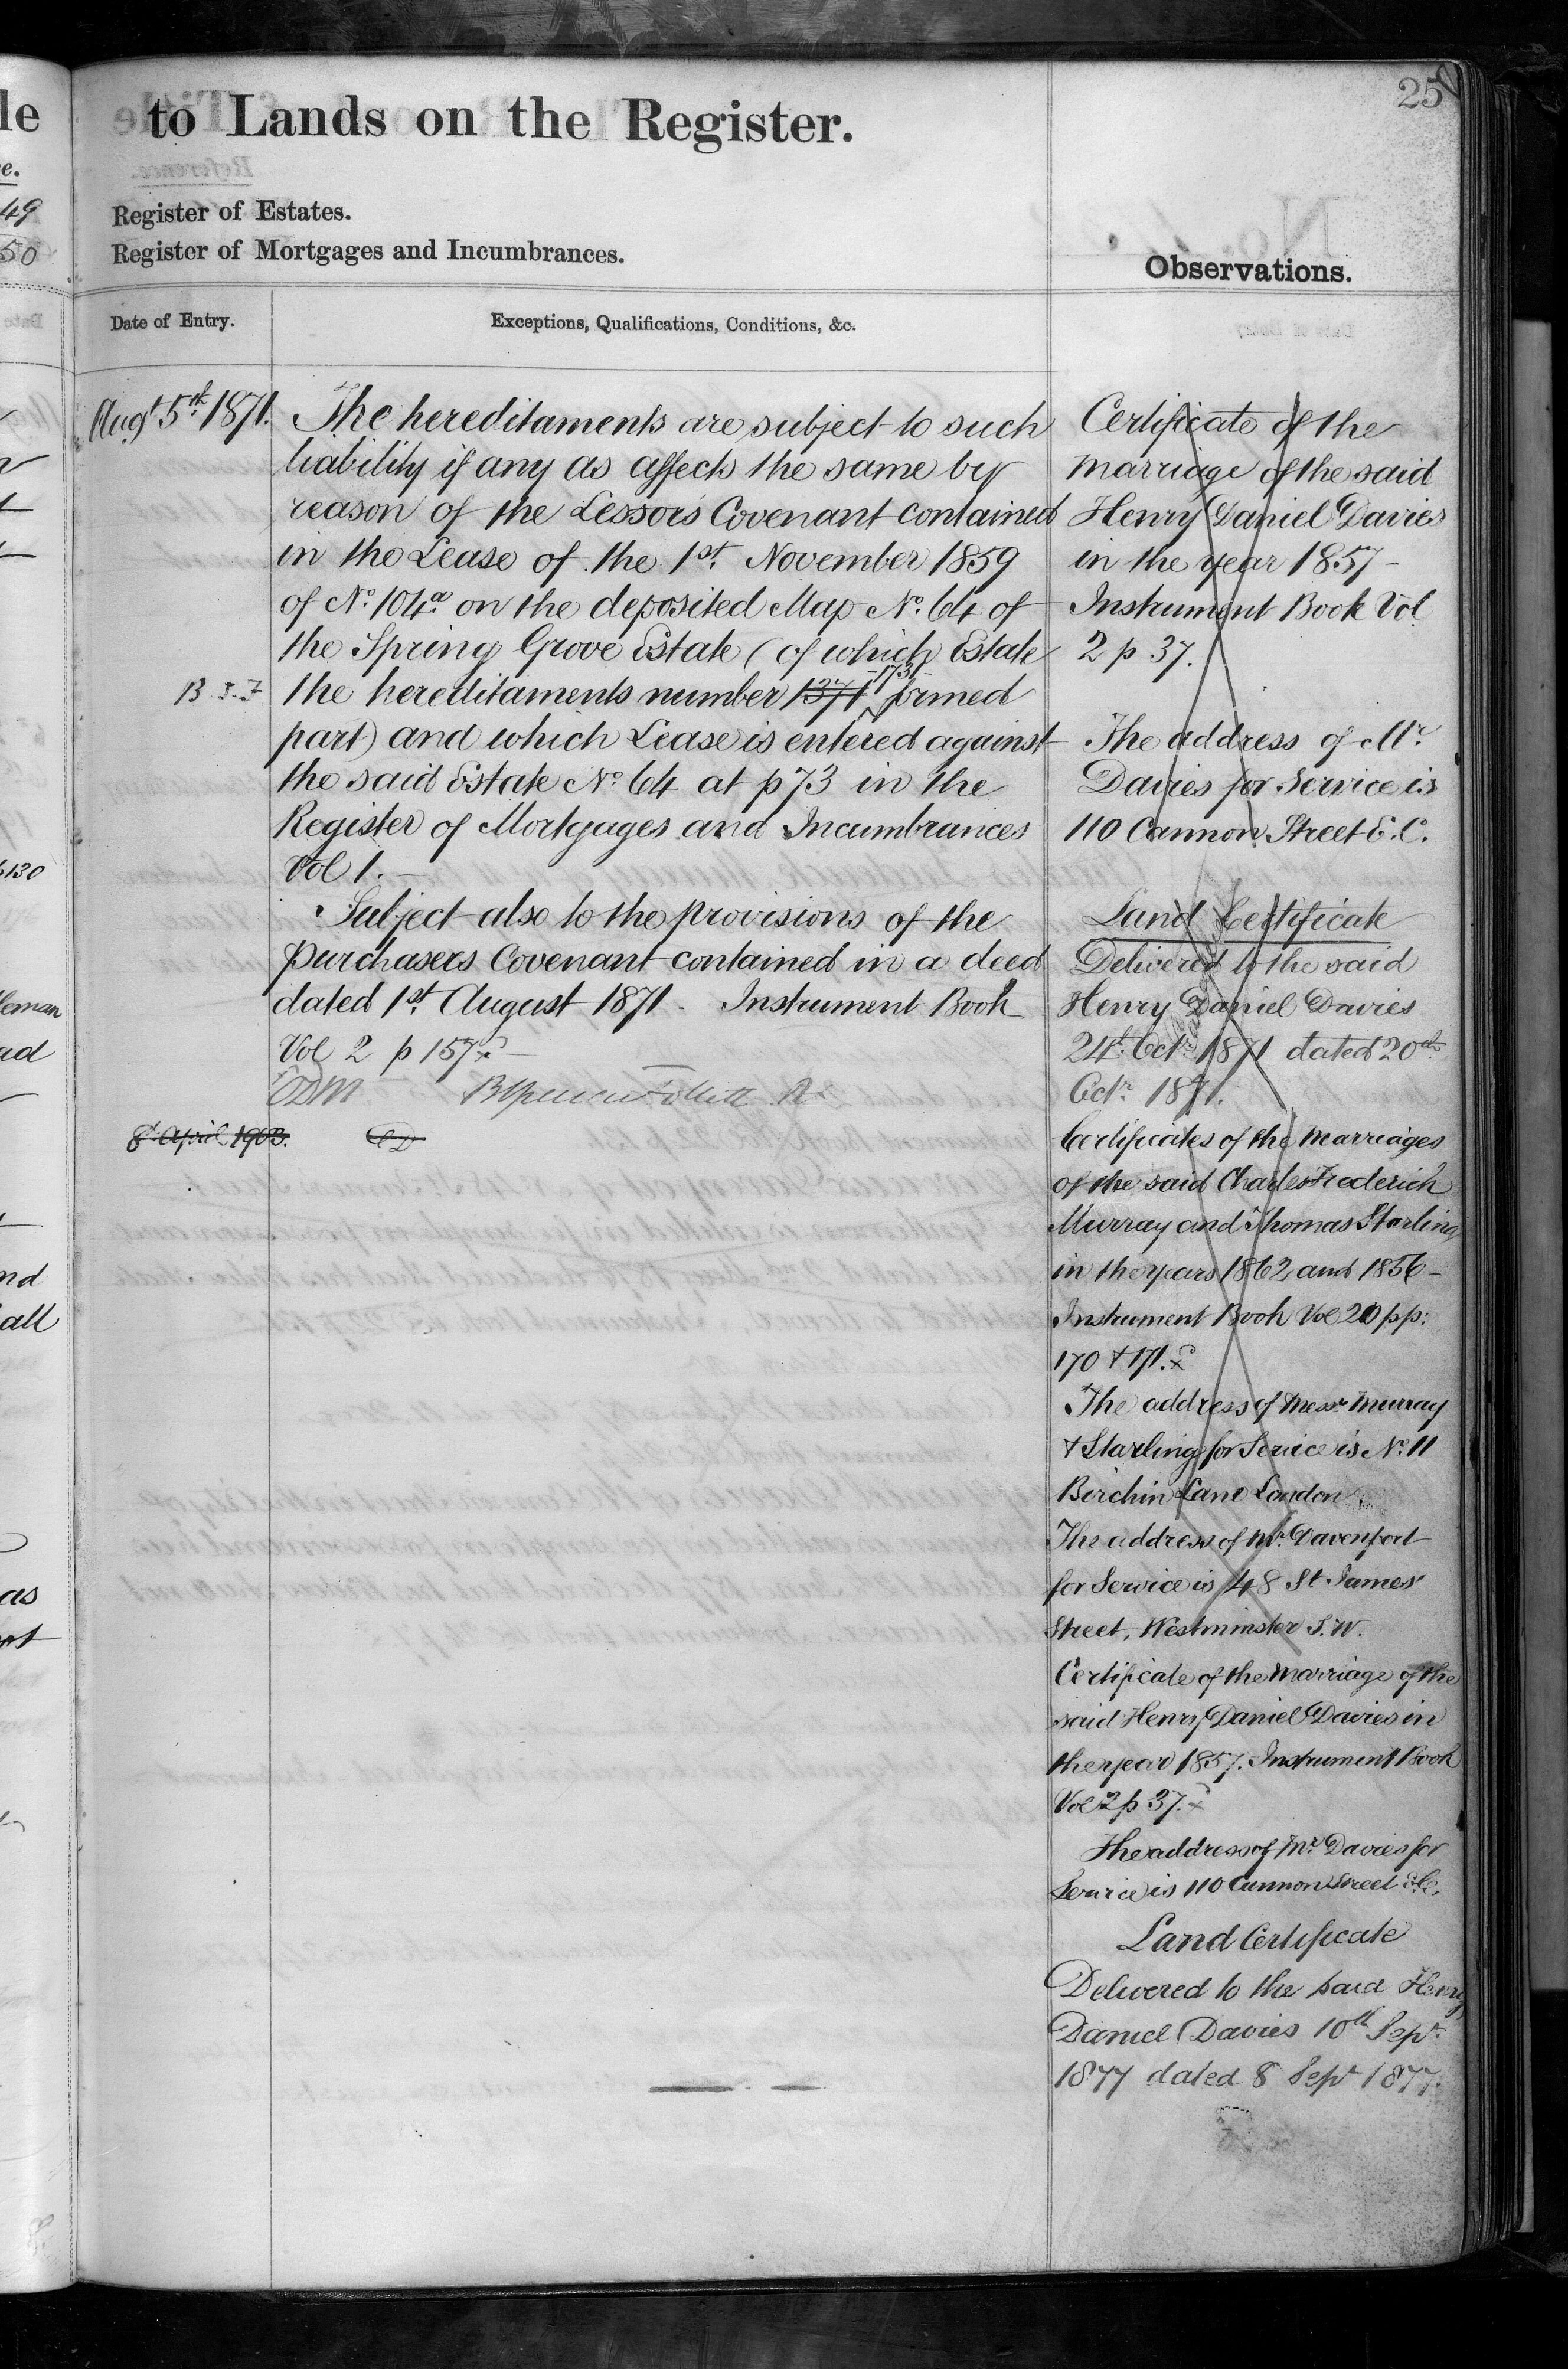 25
to Lands on the Register.
Register of Estates.
Register of Mortgages and Incumbrances.
Observations.
Date of Entry.
Exceptions, Qualifications, Conditions, &c.
Augt. 5th. 1871.
The hereditaments are subject to such
liability if any as affects the same by
reason of the Lessors Covenant contained
in the Lease of the 1st. November 1859
of No. 104a on the deposited Map No. 64 of
the Spring Grove Estate (of which Estate
B J. F
the hereditaments number 1371 173 formed
part) and which Lease is entered against
the said Estate No. 64 at p 73 in the
Register of Mortgages and Incumbrances
Vol 1. –
Subject also to the provisions of the
purchasers Covenant contained in a deed
dated 1st. August 1871 – Instrument Book
Vol 2 p 157
8th April 1903.
Certificate of the
marriage of the said
Henry Daniel Davies
in the year 1857 –
Instrument Book Vol
2 p 37.
The address of Mr.
Davies for Service is
110 Cannon Street E.C.
Land Certificate
Delivered to the said
Henry Daniel Davies
24th. Octr. 1871 dated 20th
Octr. 1871.
Certificates of the Marriages
of the said Charles Frederick
Murray and Thomas Starling
in the years 1862 and 1856 –
Instrument Book Vol 20 pp:
170 & 171.
The address of Messrs Murray
& Starling for Service is No. 11
Birchin Lane London
The address of Mr. Davenport
for Service is 48 St James'
Street, Westminster S.W.
Certificate of the Marriage of the
said Henry Daniel Davies in
the year 1857. Instrument Book
Vol 2 p 37.
The address of Mr. Davies for
Service is 110 Cannon Street E.C.
Land Certificate
Delivered to the said Henry
Daniel Davies 10th Sept.
1877 dated 8 Sept 1877.